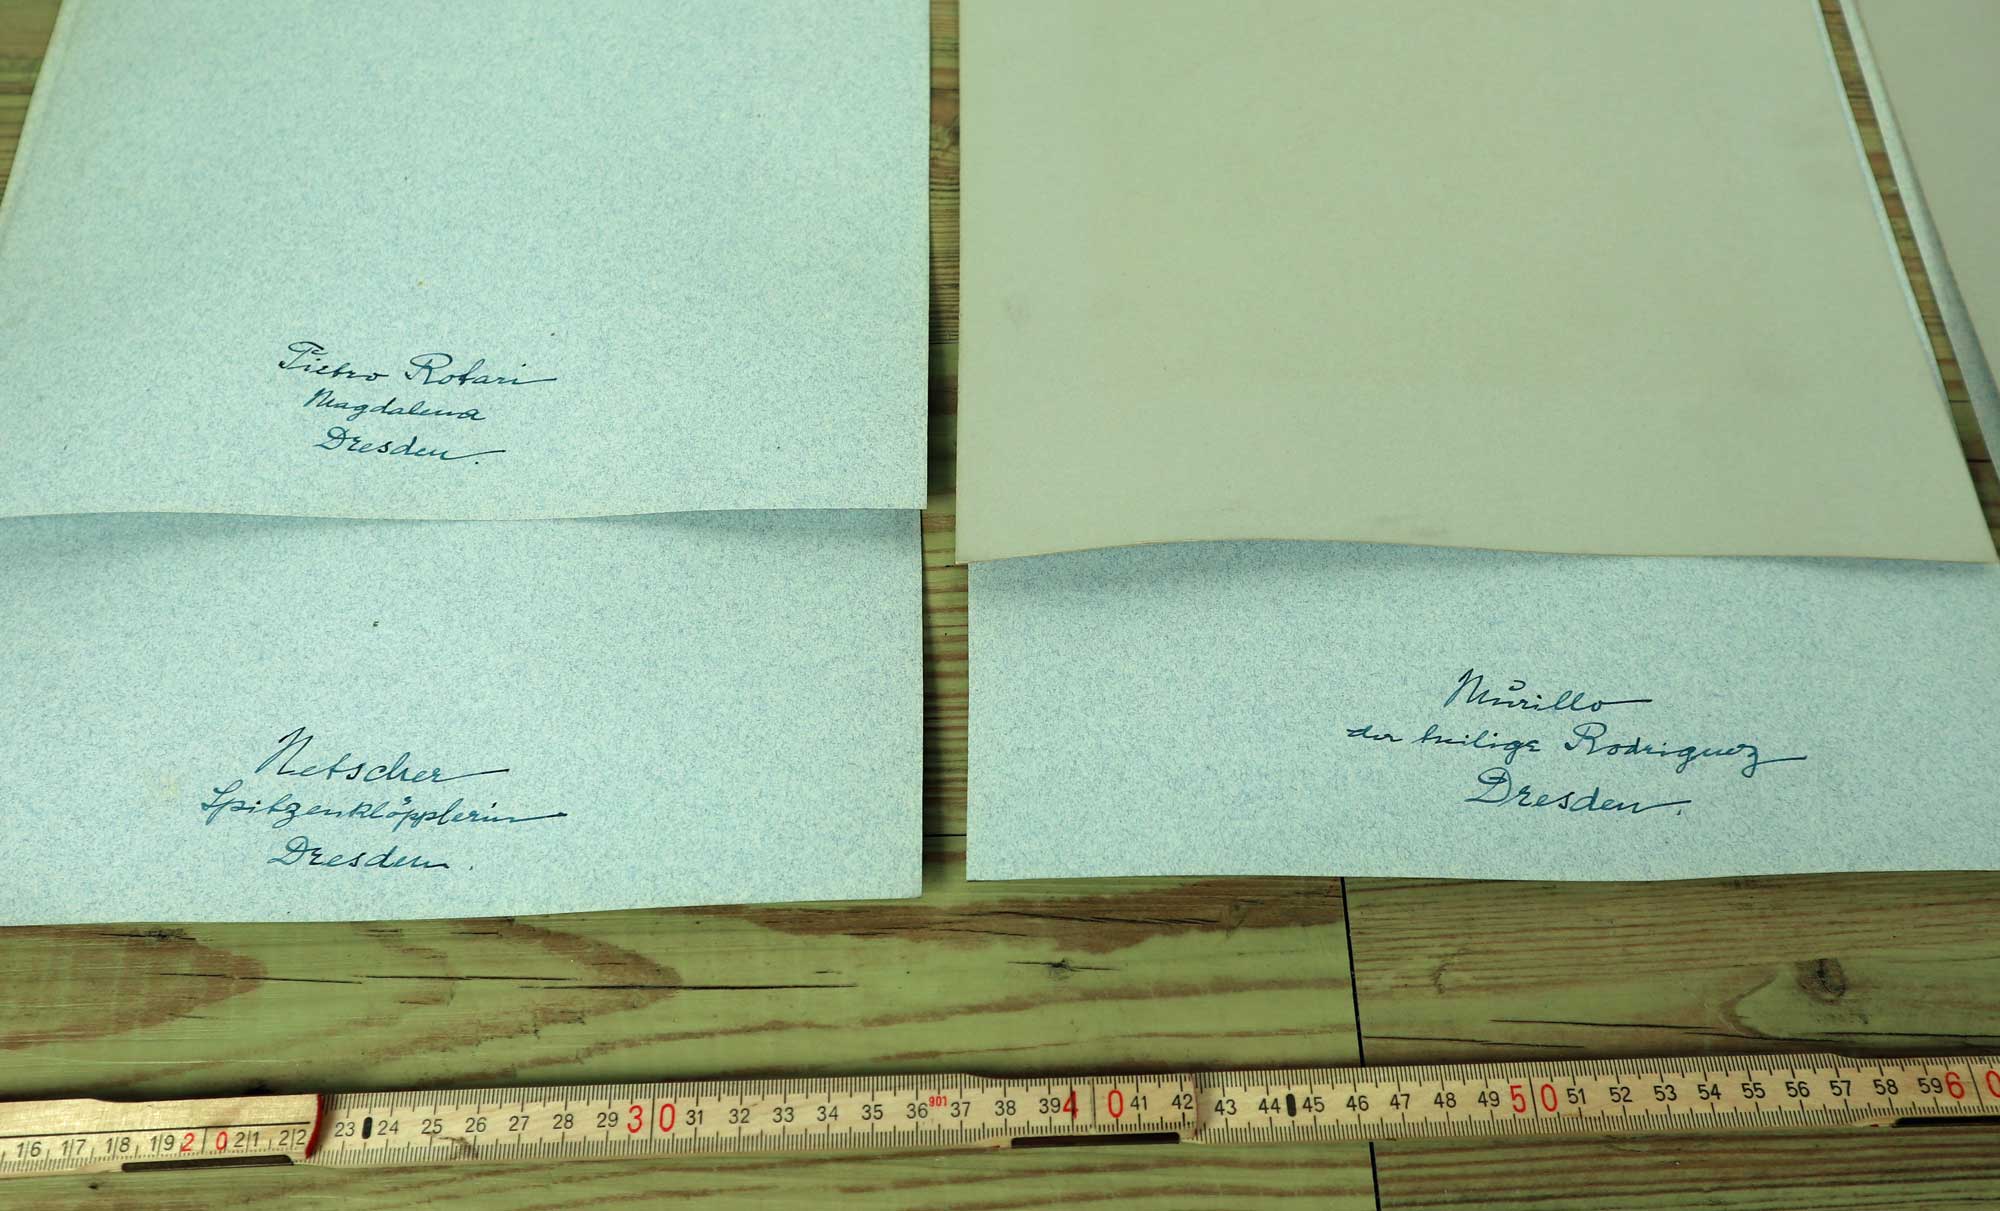 Pietro Rotari
Magdalena
Dresden.
Netscher
Spitzenklöpplerin
Dresden.
Murillo
der heilige Rodriguez
Dresden.
16 17 18 19 20 21 22 23 24 25 26 27 28 29 30 31 32 33 34 35 36 901 37 38 39 40 41 42 43 44 45 46 47 48 49 50 51 52 53 54 55 56 57 58 59 60